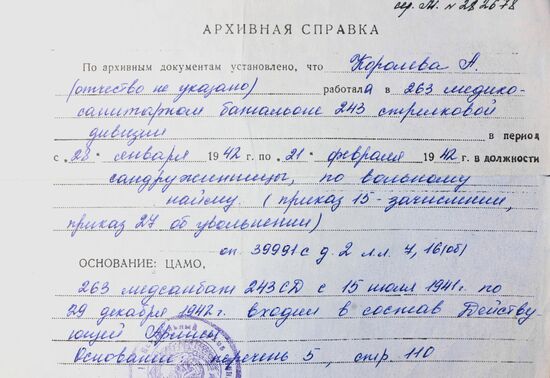 сер. М. № 282678
АРХИВНАЯ СПРАВКА
По архивным документам установлено, что Королева А.
(отчество не указано) работала в 263 медико-
санитарном батальоне 243 стрелковой
дивизии в период
с „28" января 1942 г. по „21" февраля 1942 г. в должности
сандружинницы, по вольному
найму. (приказ 15 - зачислении,
приказ 27 об увольнении)
оп. 39991с д. 2 л.л. 7, 16(об)
ОСНОВАНИЕ: ЦАМО,
263 медсанбат 243 СД с 15 июля 1941 г. по
29 декабря 1942 г. входил в состав Действу-
ющей Армии
Основание: перечень 5, стр. 110